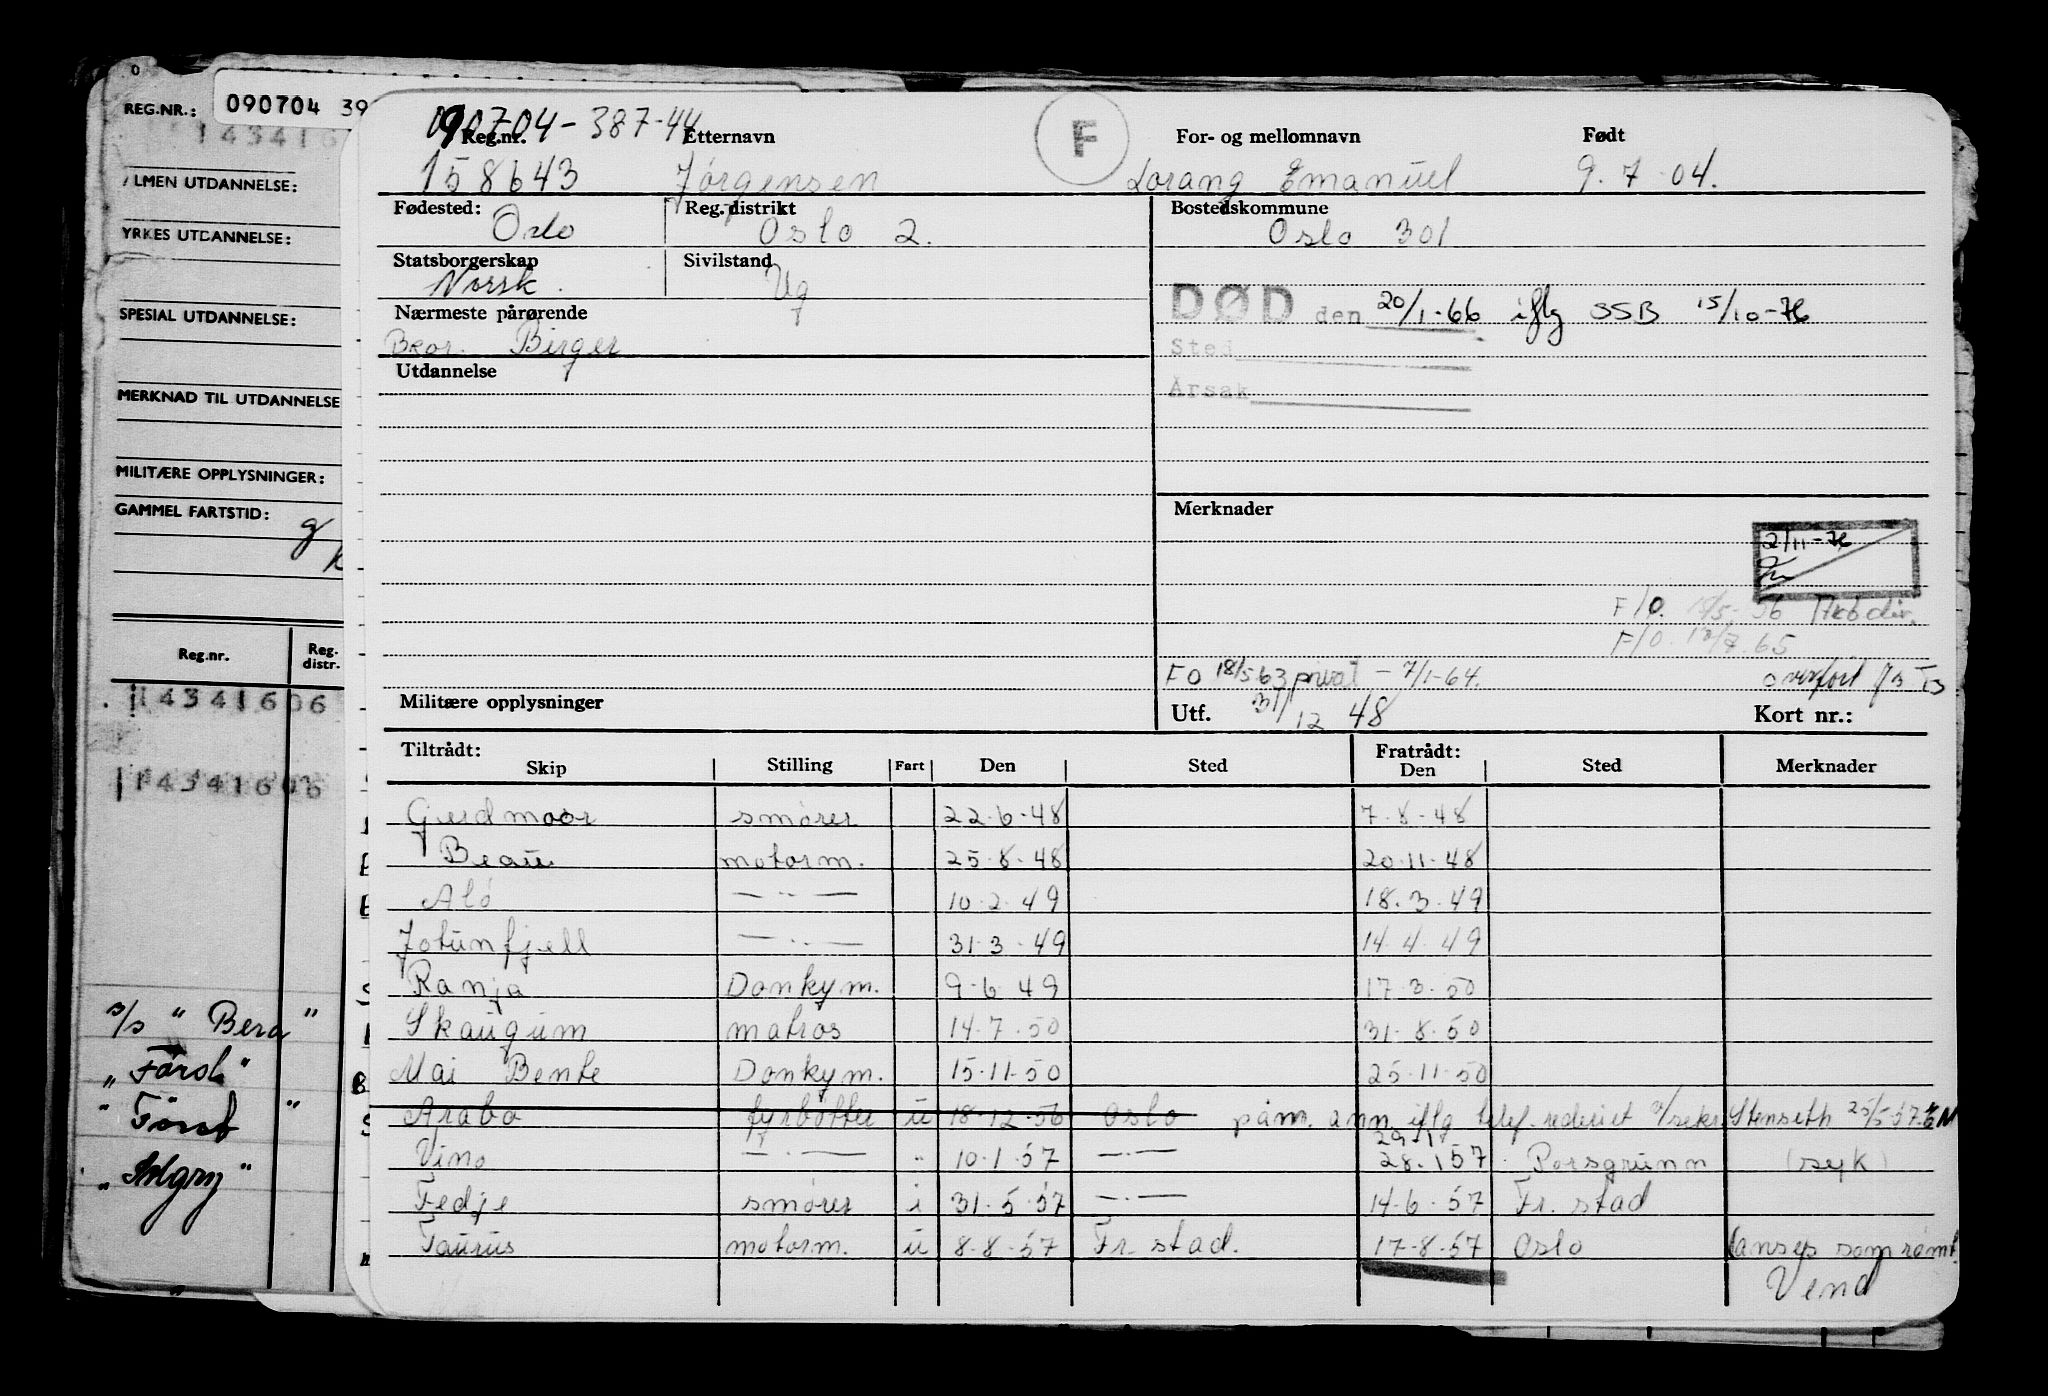 O
REG.NR.: 090704 39
1434160
ALMEN UTDANNELSE:
YRKES UTDANNELSE:
SPESIAL UTDANNELSE:
MERKNAD TIL UTDANNELSE
MILITÆRE OPPLYSNINGER:
GAMMEL FARTSTID:
Reg.nr. Reg. distr.
14341606
14341606
s/s " Bera "
" Førsh "
" Först "
" Algry "
090704-387-44
Reg.nr. Etternavn F For- og mellomnavn Født
158643 Jørgensen Lorang Emanuel 9.7.04.
Fødested: Oslo Reg. distrikt Oslo 2. Bostedskommune Oslo 301
Statsborgerskap Norsk. Sivilstand Ug
DØD den 20/1-66 iflg SSB 15/10-76
Nærmeste pårørende
Bror. Birger
Sted
Utdannelse
Årsak
Merknader
2/11-76
F/O. 15/5-56 Arb dir.
F/O. 12/7.65
FO 18/5 63 privat - 7/1-64. overført
Militære opplysninger Utf. 31/12 48 Kort nr.:
Tiltrådt: Fratrådt:
Skip Stilling Fart Den Sted Den Sted Merknader
Gjerdmoor smører 22.6.48 7.8.48
Beau motorm. 25.8.48 20.11.48
Alö — " — 10.2.49 18.3.49
Jotunfjell — " — 31.3.49 14.4.49
Ranja Donkym. 9.6.49 17.3.50
Skaugum matros 14.7.50 31.8.50
Mai Bente Donkym. 15.11.50 25.11.50
Arabo fyrbøtter u 18.12.56 Oslo påm. ann. iflg telef. rederiet v/sekr. Stenseth 25/5-57. EN
29-1
Vino — " — " 10.1.57 — " — 28.1 57 Porsgrunn (syk)
Fedje smører i 31.5.57 — " — 14.6.57 Fr. stad
Taurus motorm. u 8.8.57 Fr. stad. 17.8.57 Oslo (anses som rømt.
Vend